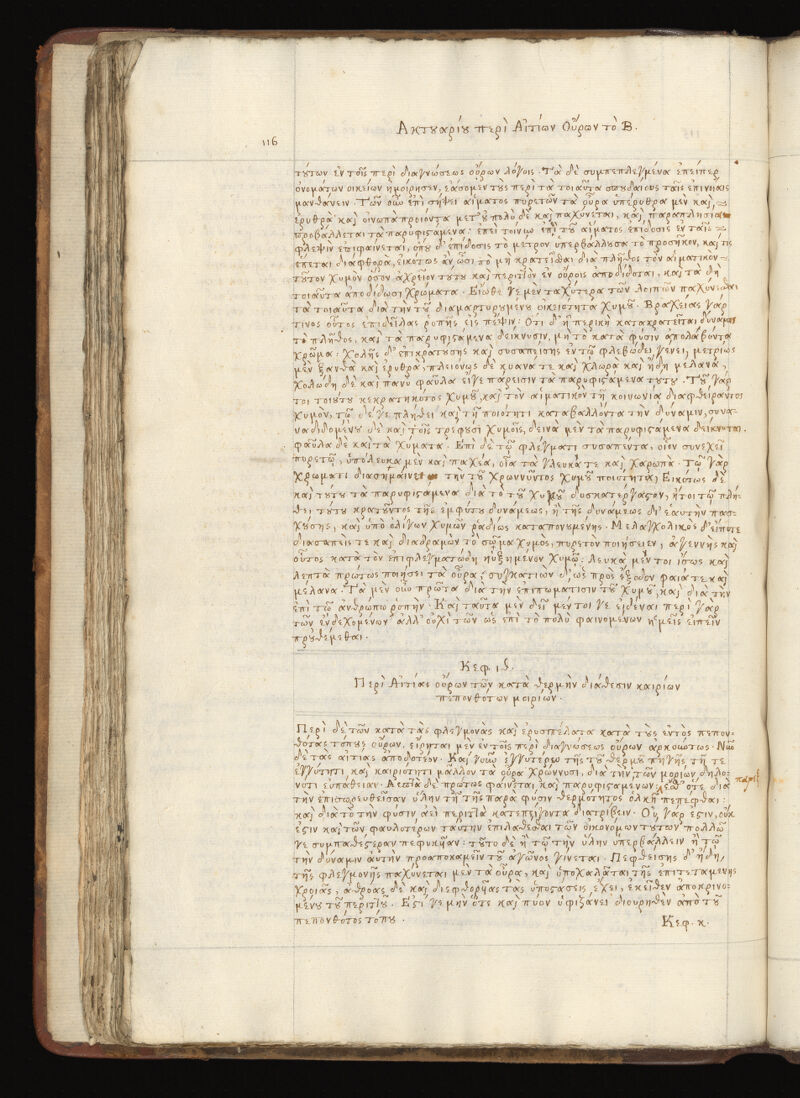 Ἀκτουαρίου περὶ Αἰτίων Οὔρων τὸ Β.
116
τούτων ἐν τοῖς περὶ διαγνώσεως οὔρων λόγοις. Τὰ δὲ συμπεπλεγμένα ἐπείπερ
ὀνομάτων οἰκείων ἠμοίρησεν, ἐάσομεν τοὺς περὶ τὰ τοιαῦτα σπουδαίους ταῖς ἐπινοίαις
μανθάνειν. Τῶν οὖν ἐπὶ σήψει αἵματος πυρετῶν τὰ οὖρα ὑπέρυθρα μὲν καὶ
ἐρυθρὰ καὶ οἰνωπὰ προϊόντα μετ' οὐ πολὺ δὲ καὶ παχύνεται, καὶ παραπλήσια
προβάλλεται τὰ παρυφιστάμενα· ἐπεὶ τοίνυν ἐπὶ τοῦ αἵματος ἐπίδοσις ἐν ταῖς
φλεψὶν ἐπιφαίνεται, ὑπὸ δ' ἐπίδοσις τὸ μέτρον ὑπερβάλλουσα τὸ προσῆκον, καί τις
ἕπεται διαφθορὰ, εἰκότως ἂν ὡσὶ τὸ μὴ κρατεῖσθαι διὰ πλῆθος τὸν αἱματικὸν
τοῦτον χυμὸν ὅσον ἀχρεῖον τούτου καὶ περιττὸν ἐν οὔροις ἀποδίδοται, καὶ τὰ δὴ
τοιαῦτα ἀποδίδωσι χρώματα. Εἴωθε γε μὲν ταχύτερα τῶν λοιπῶν παχύνεσθαι
τὰ τοιαῦτα διὰ τὴν τοῦ διαμαρτυρουμένου οἰκειότητα χυμοῦ. Βραχείας γάρ
τινος οὗτος ἐπιδεῖται ῥοπῆς εἰς πέψιν. Ὅτι δ' ἡ πεπτικὴ κατακρατεῖται δύναμις
τὸ πλῆθος, καὶ τὰ παρυφιστάμενα δείκνυσιν, μὴ τὸ κατὰ φύσιν ἀπολαβόντα
χρῶμα. Χολῆς δ' ἐπικρατούσης καὶ συσαπείσης ἐν τῷ φλεβώδει γένει, μετρίως
μὲν ξανθὰ καὶ ἐρυθρὰ, πλειόνως δὲ κυανά τε καὶ χλωρὰ καὶ ἤδη μέλανα,
χολώδη δὲ καὶ πάνυ φαῦλα εἴγε πάρεισιν τὰ παρυφιστάμενα τούτου. Τοῦ γάρ
τοι τοιούτου κεκρατηκότος χυμοῦ, καὶ τὸν αἱματικὸν τῇ κοινωνίᾳ διαφθείραντος
χυμὸν, τῷ δέ γε πλήθει καὶ τῇ ποιότητι καταβάλλοντα τὴν δύναμιν, συνα-
ναδιδομένου δὲ καὶ τοῖς τρέφουσι χυμοῖς, δεινὰ μὲν τὰ παρυφιστάμενα δείκνυται,
φαῦλα δὲ καὶ τὰ χύματα. Ἐπὶ δὲ τῷ φλέγματι συσαπέντα, οἷον συνεχεῖ
πυρετῷ, ὑπόλευκα μὲν καὶ παχέα, οἷα τὰ γλευκά τε καὶ χαροπά. Τῷ γὰρ
χρώματι διασημαίνει τὴν τοῦ χρωννύντος χυμοῦ ποιότητα· Εἰκότως δὲ
καὶ τούτου τὰ παρυφιστάμενα διὰ τὸ τοῦ χυμοῦ δυσκατέργαστον, ἤτοι τῷ πλή-
θει τούτου κρατοῦντος τῆς ἐμφύτου δυνάμεως, ἢ τῆς δυνάμεως δι' ἑαυτὴν πασ-
χούσης, καὶ ὑπὸ ὀλίγων χυμῶν ῥᾳδίως καταπονουμένης. Μελαγχολικὸς δ' εἴποτε
διασαπείς τε καὶ διαδραμὼν τὸ σῶμα χυμὸς, πυρετὸν ποιήσειεν, ἀγεννὴς καὶ
οὗτος κατὰ τὸν ἐπιφλεγματώδη ηὐξημένον χυμῷ. Λευκὰ μέν τοι ἴσως καὶ
λεπτὰ πρώτως ποιήσει τὰ οὖρα, συγκατιὼν δ' ὡς πρὸς ἔξοδον φαιά τε καὶ
μέλανα. Τὰ μὲν οὖν πρῶτα διὰ τὴν ἐπιπωμάτισιν τοῦ χυμοῦ, καὶ διὰ τὴν
ἐπὶ τῷ ἀνθρώπῳ ῥοπήν. Καὶ ταῦτα μὲν δεῖ μέντοι γε εἰδέναι περὶ γὰρ
τῶν ἐνδεχομένων ἀλλ' οὐχὶ τῶν ὡς ἐπὶ τὸ πολὺ φαινομένων ἡμεῖς εἰπεῖν
προὐθέμεθα.
Κεφ. ιθ.
Περὶ Αἰτίας οὔρων τῶν κατὰ θερμὴν διάθεσιν καιρίων
πεπονθότων μορίων.
Περὶ δὲ τῶν κατὰ τὰς φλεγμονὰς καὶ ἐρυσιπέλατα κατὰ τοὺς ἐντὸς πεπον-
θότας τόπους οὔρων, εἴρηται μὲν ἐν τοῖς περὶ διαγνώσεως οὔρων ἀρκούντως. Νῦν
δὲ τὰς αἰτίας ἀποδοτέον. Καὶ γοῦν ἐγγυτέρω τῆς τοῦ θερμοῦ πηγῆς τῇ τε
ἐγγύτητι, καὶ καιριότητι μᾶλλον τὰ οὖρα χρώννυσι, διὰ τὴν τῶν μορίων δηλο-
νότι εὐπάθειαν. Λεπτὰ δὲ πρώτως φαίνεται, καὶ παρυφισταμένων ἔσθ' ὅτε διὰ
τὴν ἐπισωρευθεῖσαν ὕλην τῇ τῆς παρὰ φύσιν θερμότητος ὁλκῇ πεπέφθαι·
καὶ διὰ τὸ τὴν φύσιν ἀεὶ περὶ τὰ κατεπείγοντα διατρίβειν. Οὐ γάρ ἐστιν, οὐκ
ἔστιν καὶ τῶν φαυλοτέρων ταύτην ἐπιλαθέσθαι τῶν οἰκονόμων τούτων πολλῷ
γε συμπαθέστεραν πεφυκῦαν· τοῦτο δὲ ἢ τῷ τὴν ὕλην ὑπερβάλλειν ἢ τῷ
τὴν δύναμιν αὐτὴν προαποκάμειν τοῦ ἀγῶνος γίνεται. Πεφθείσης δ' ἤδη,
τῆς φλεγμονῆς παχύνεται μὲν τὰ οὖρα, καὶ ὑποχαλᾶται τῆς ἐπιτεταμένης
χροιᾶς, ἀθρόας δὲ καὶ διεφθορυίας τὰς ὑποστάσεις ἔχει, ἐκεῖθεν ἀποκρινο-
μένου τοῦ περιττοῦ. Ἔστι γε μὴν ὅτε καὶ πῦον ὑφιζάνει διουρηθὲν ἀπὸ τοῦ
πεπονθότος τόπου.
Κεφ. κ.